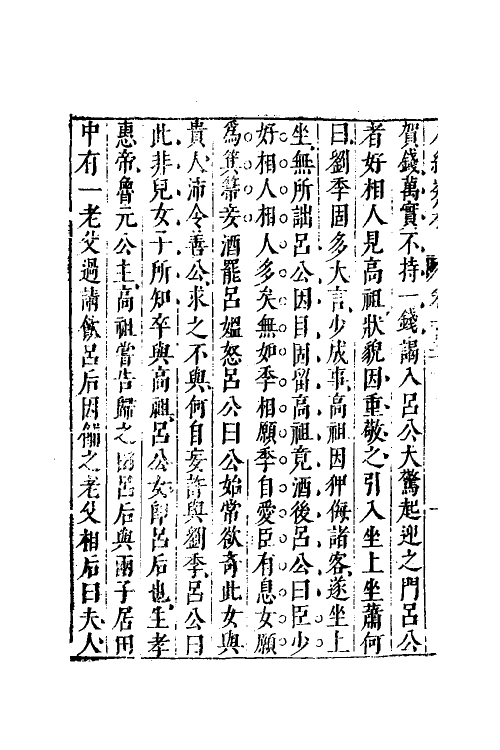 賀錢萬實不持一錢謁入呂公大驚起迎之門呂公
者好相人見高祖狀貌因重敬之引入坐上坐蕭何
曰劉季固多大言少成事高祖因狎侮諸客遂坐上
坐無所詘呂公因目固留高祖竟酒後呂公曰臣少
好相人相人多矣無如季相願季自愛臣有息女願
爲箕箒妾酒罷呂媼怒呂公曰公始常欲奇此女與
貴人沛令善公求之不與何自妄許與劉季呂公曰
此非兒女子所知卒與高祖呂公女卽呂后也生孝
惠帝魯元公主高祖嘗告歸之田呂后與兩子居田
中有一老父過請飮呂后因餔之老父相后曰夫人